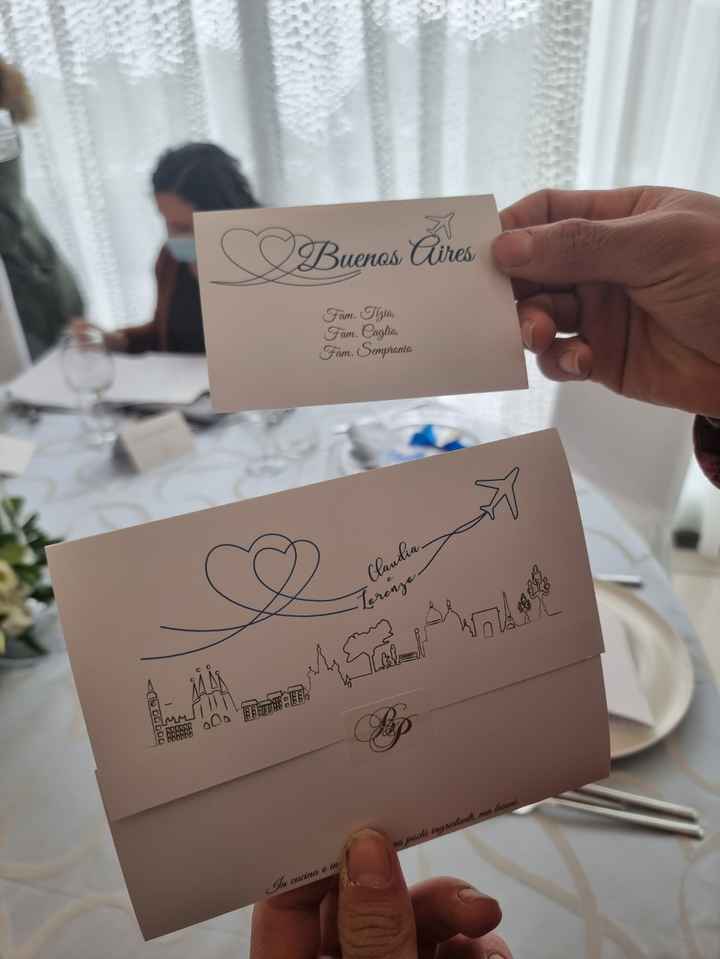 Buenos Aires
Fam. Tizio,
Fam. Caglio,
Fam. Sempronio
Claudia
e
Lorenzo
In cucina e in pochi ingredienti, ma buoni